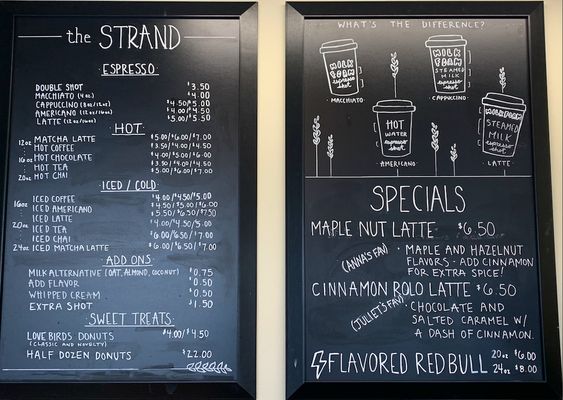 the STRAND
ESPRESSO
DOUBLE SHOT $3.50
MACCHIATO (4oz.) $4.00
CAPPUCCINO (8oz/12oz) $4.50/$5.00
AMERICANO (12oz/16oz) $4.00/$4.50
LATTE (12oz/16oz) $5.00/$5.50
HOT
12oz MATCHA LATTE $5.00/$6.00/$7.00
HOT COFFEE $3.50/$4.00/$4.50
16oz HOT CHOCOLATE $4.00/$5.00/$6.00
HOT TEA $3.50/$4.00/$4.50
20oz HOT CHAI $5.00/$6.00/$7.00
ICED / COLD
ICED COFFEE $4.00/$4.50/$5.00
16oz ICED AMERICANO $4.50/$5.00/$6.00
ICED LATTE $5.50/$6.50/$7.50
20oz ICED TEA $4.00/$4.50/$5.00
ICED CHAI $6.00/$6.50/$7.00
24oz ICED MATCHA LATTE $6.00/$6.50/$7.00
ADD ONS
MILK ALTERNATIVE (OAT, ALMOND, COCONUT) $0.75
ADD FLAVOR $0.50
WHIPPED CREAM $0.50
EXTRA SHOT $1.50
SWEET TREATS
LOVE BIRDS DONUTS $4.00/$4.50
(CLASSIC AND NOVELTY)
HALF DOZEN DONUTS $22.00
WHAT'S THE DIFFERENCE?
MILK
FOAM
espresso
shot
MACCHIATO
MILK
FOAM
STEAMED
MILK
espresso
shot
CAPPUCCINO
HOT
WATER
espresso
shot
AMERICANO
STEAMED
MILK
espresso
shot
LATTE
SPECIALS
MAPLE NUT LATTE $6.50
(ANNA'S FAV)
• MAPLE AND HAZELNUT
FLAVORS - ADD CINNAMON
FOR EXTRA SPICE!
CINNAMON ROLO LATTE $6.50
(JULIET'S FAV)
• CHOCOLATE AND
SALTED CARAMEL W/
A DASH OF CINNAMON.
FLAVORED RED BULL 20oz $6.00
24oz $8.00